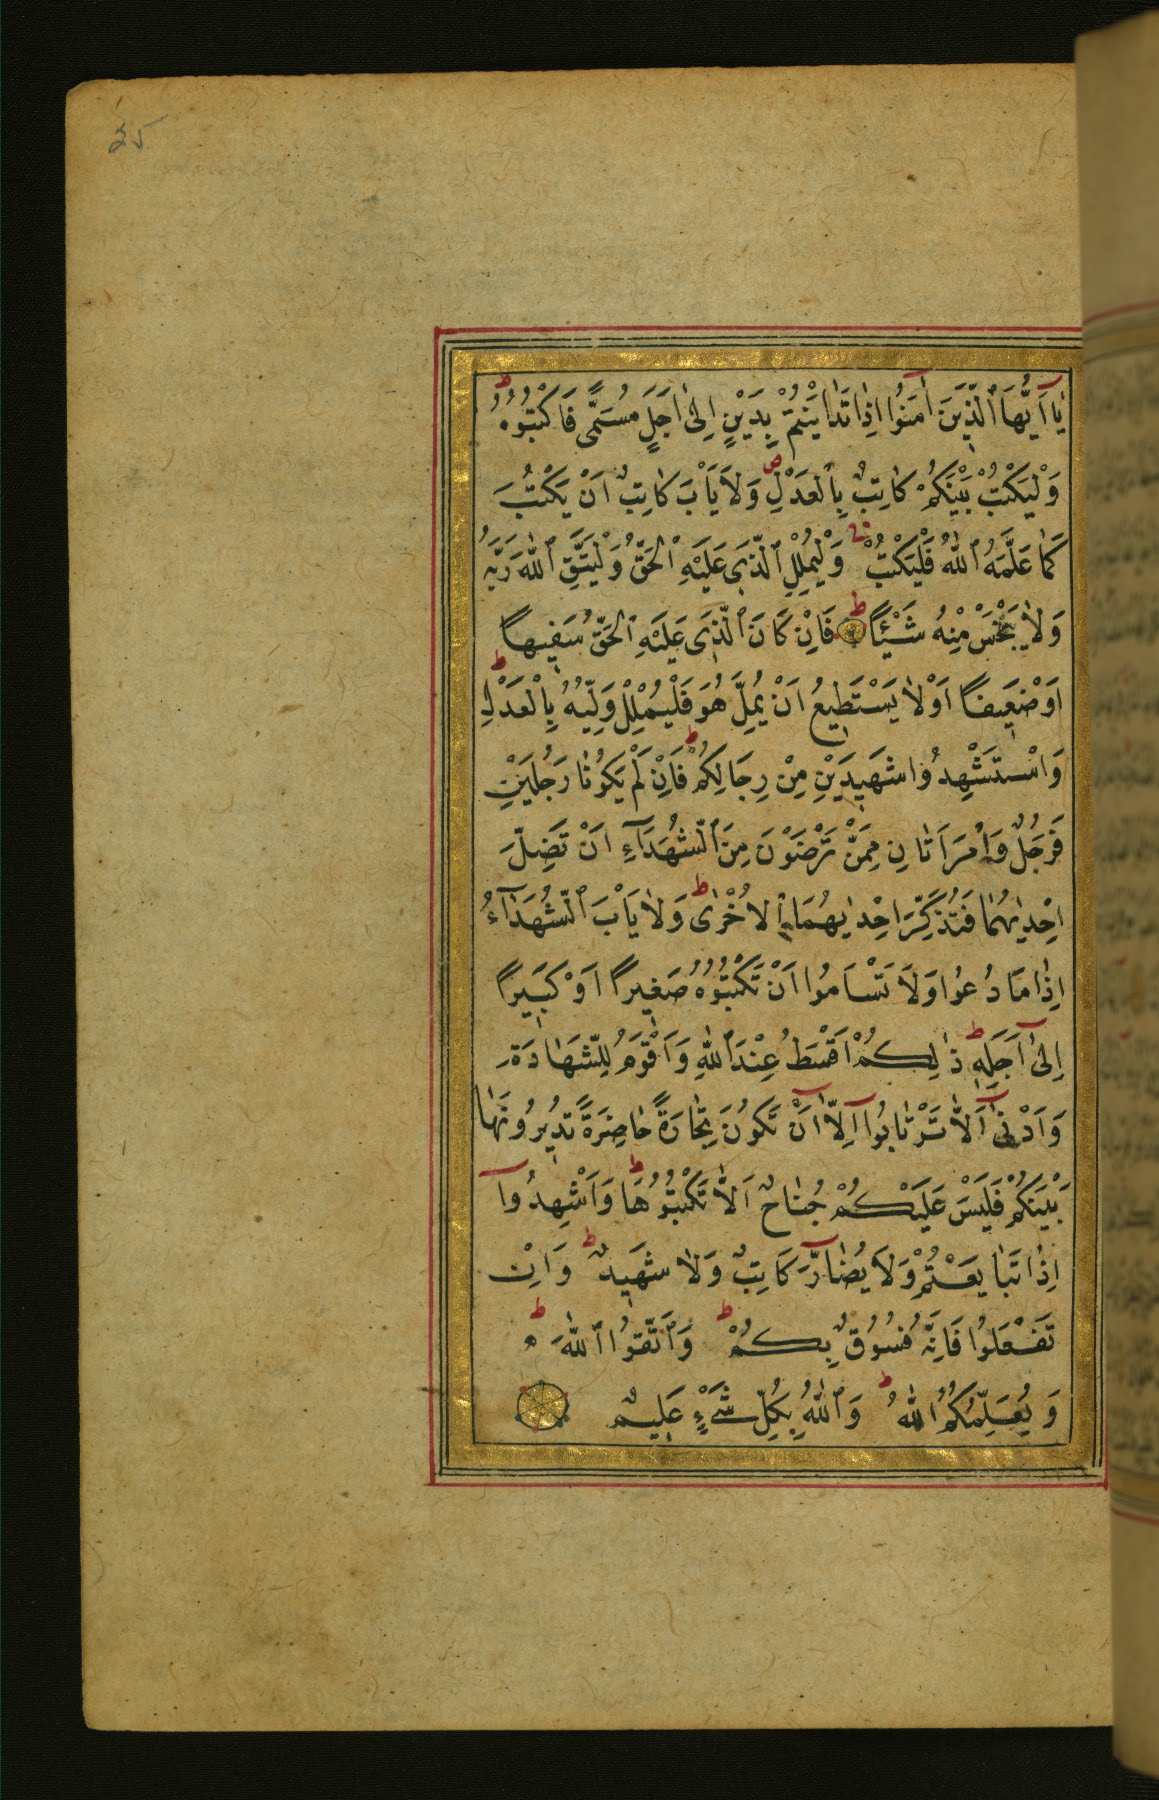 يَا اَيُّهَا الَّذِينَ اٰمَنُوا اِذَا تَدَايَنْتُمْ بِدَيْنٍ اِلٰى اَجَلٍ مُسَمًّى فَاكْتُبُوهُ ط
وَلْيَكْتُبْ بَيْنَكُمْ كَاتِبٌ بِالْعَدْلِ ص وَلَا يَاْبَ كَاتِبٌ اَنْ يَكْتُبَ
كَمَا عَلَّمَهُ اللّٰهُ فَلْيَكْتُبْ وَلْيُمْلِلِ الَّذِى عَلَيْهِ الْحَقُّ وَلْيَتَّقِ اللّٰهَ رَبَّهُ
وَلَا يَبْخَسْ مِنْهُ شَيْئًا ط فَاِنْ كَانَ الَّذِى عَلَيْهِ الْحَقُّ سَفِيهًا
اَوْ ضَعِيفًا اَوْ لَا يَسْتَطِيعُ اَنْ يُمِلَّ هُوَ فَلْيُمْلِلْ وَلِيُّهُ بِالْعَدْلِ ط
وَاسْتَشْهِدُوا شَهِيدَيْنِ مِنْ رِجَالِكُمْ ط فَاِنْ لَمْ يَكُونَا رَجُلَيْنِ
فَرَجُلٌ وَامْرَاَتَانِ مِمَّنْ تَرْضَوْنَ مِنَ الشُّهَدَآءِ اَنْ تَضِلَّ
اِحْدٰيهُمَا فَتُذَكِّرَ اِحْدٰيهُمَا الْاُخْرٰى ط وَلَا يَاْبَ الشُّهَدَآءُ
اِذَا مَا دُعُوا وَلَا تَسْاَمُوا اَنْ تَكْتُبُوهُ صَغِيرًا اَوْ كَبِيرًا
اِلٰٓى اَجَلِهِ ط ذٰلِكُمْ اَقْسَطُ عِنْدَ اللّٰهِ وَاَقْوَمُ لِلشَّهَادَةِ
وَاَدْنٰٓى اَلَّا تَرْتَابُوآ اِلَّآ اَنْ تَكُونَ تِجَارَةً حَاضِرَةً تُدِيرُونَهَا
بَيْنَكُمْ فَلَيْسَ عَلَيْكُمْ جُنَاحٌ اَلَّا تَكْتُبُوهَا ط وَاَشْهِدُوآ
اِذَا تَبَايَعْتُمْ وَلَا يُضَآرَّ كَاتِبٌ وَلَا شَهِيدٌ ط وَاِنْ
تَفْعَلُوا فَاِنَّهُ فُسُوقٌ بِكُمْ ط وَاتَّقُوا اللّٰهَ ط
وَيُعَلِّمُكُمُ اللّٰهُ ط وَاللّٰهُ بِكُلِّ شَىْءٍ عَلِيمٌ